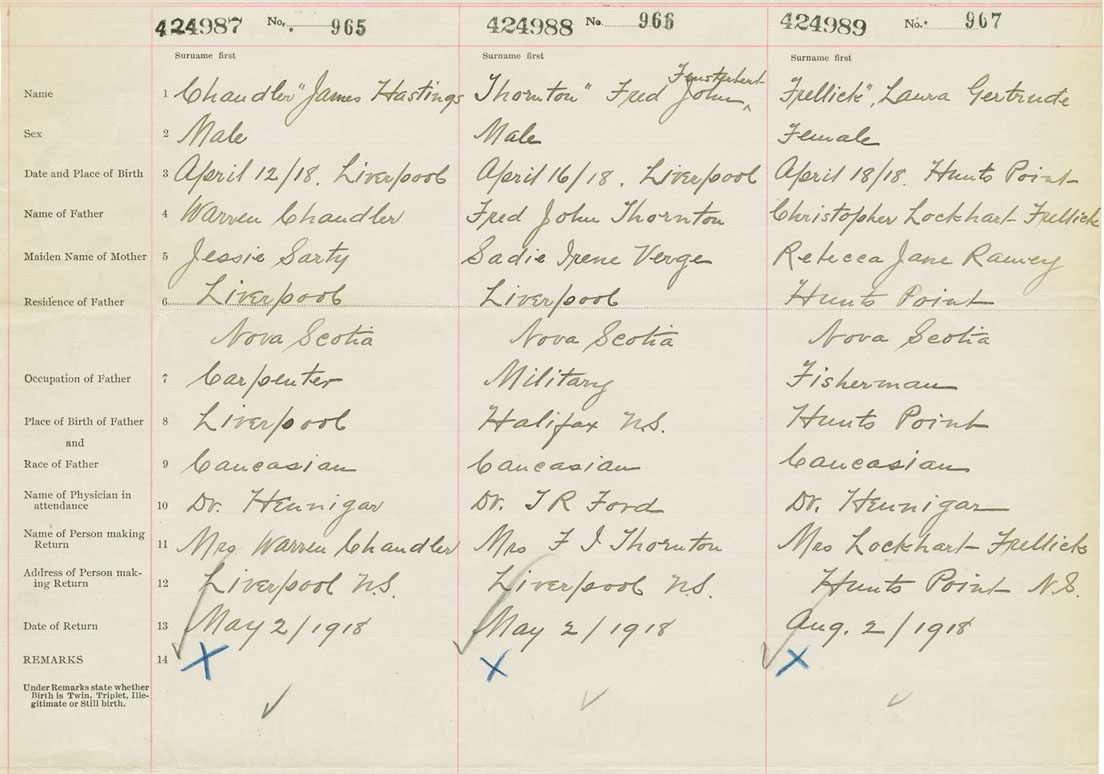 424987 No. 965 424988 No. 966 424989 No. 967
Surname first Surname first Surname first
Name 1 Chandler" James Hastings Thornton" Fred John Frellick", Laura Gertrude
Sex 2 Male Male Female
Date and Place of Birth 3 April 12/18. Liverpool April 16/18. Liverpool April 18/18. Hunts Point
Name of Father 4 Warren Chandler Fred John Thornton Christopher Lockhart Frellick
Maiden Name of Mother 5 Jessie Sarty Sadie Irene Verge Rebecca Jane Ramey
Residence of Father 6 Liverpool Liverpool Hunts Point
Nova Scotia Nova Scotia Nova Scotia
Occupation of Father 7 Carpenter Military Fisherman
Place of Birth of Father 8 Liverpool Halifax N.S. Hunts Point
and
Race of Father 9 Caucasian Caucasian Caucasian
Name of Physician in
attendance 10 Dr. Hennigar Dr. T R Ford Dr. Hennigar
Name of Person making
Return 11 Mrs Warren Chandler Mrs F J Thornton Mrs Lockhart Frellick
Address of Person mak-
ing Return 12 Liverpool N.S. Liverpool N.S. Hunts Point N.S.
Date of Return 13 May 2/1918 May 2/1918 Aug. 2/1918
REMARKS 14
Under Remarks state whether
Birth is Twin, Triplet, Ille-
gitimate or Still birth.